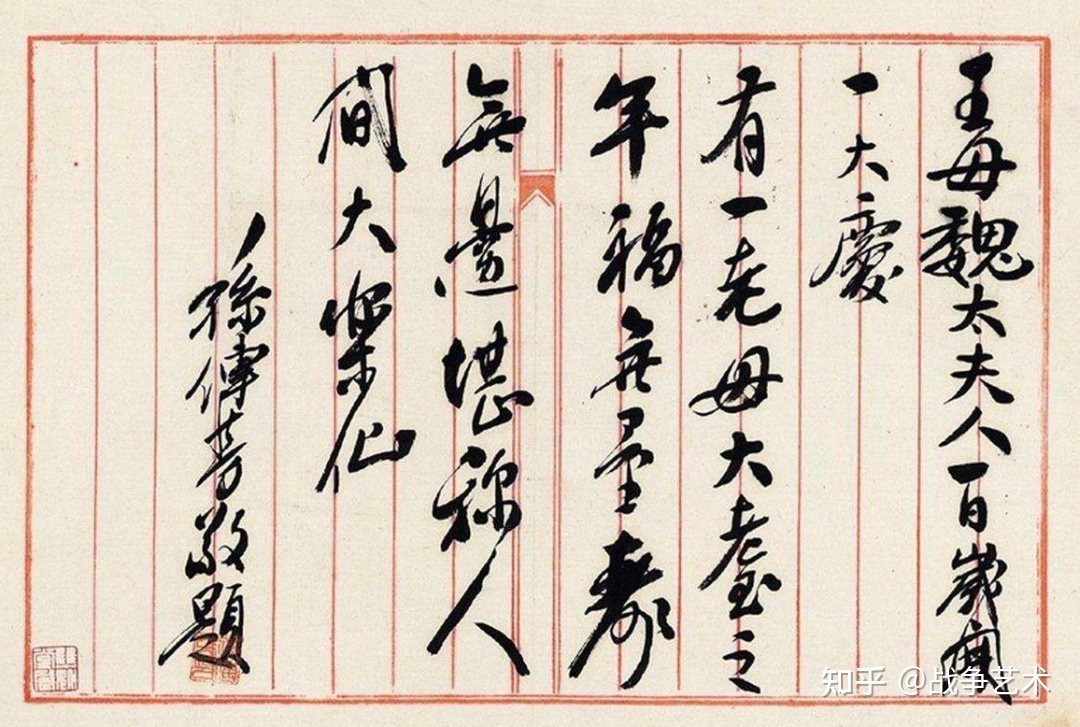 王母魏太夫人一百歲實
一大慶
有一老母大耋之
年福無量壽
無邊堪稱人
間大樂仙
孫傳芳敬題
知乎 @战争艺术